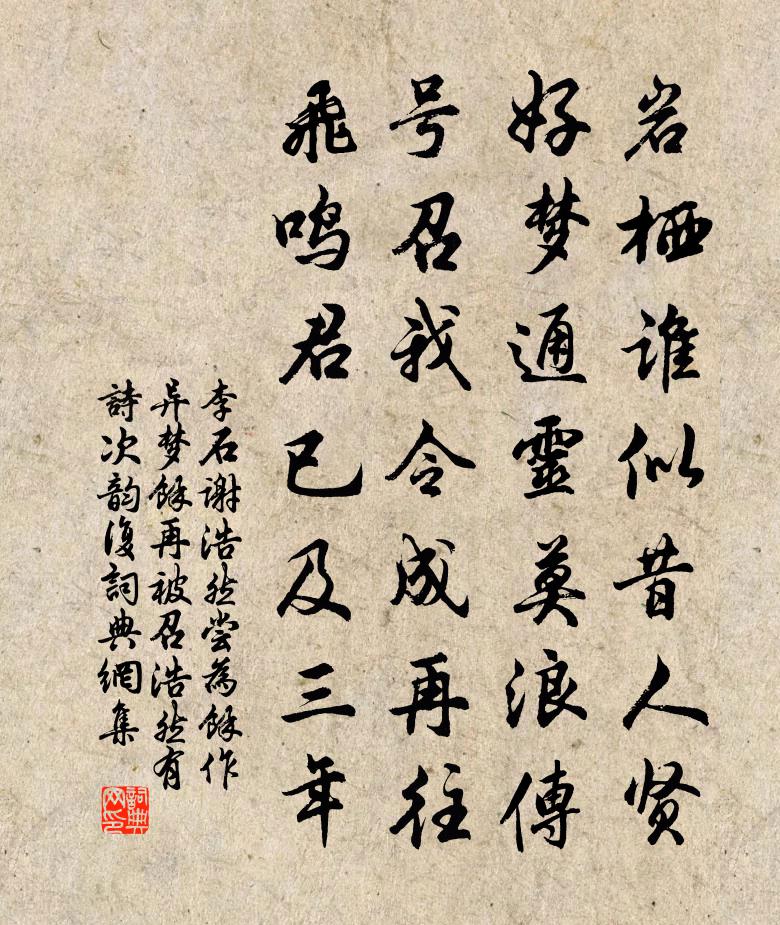 岩栖谁似昔人贤
好梦通靈莫浪傳
号召我令成再往
飛鸣君已及三年
李石谢浩然尝為餘作
异梦餘再被召浩然有
詩次韵復詞典網集
詞典
网印